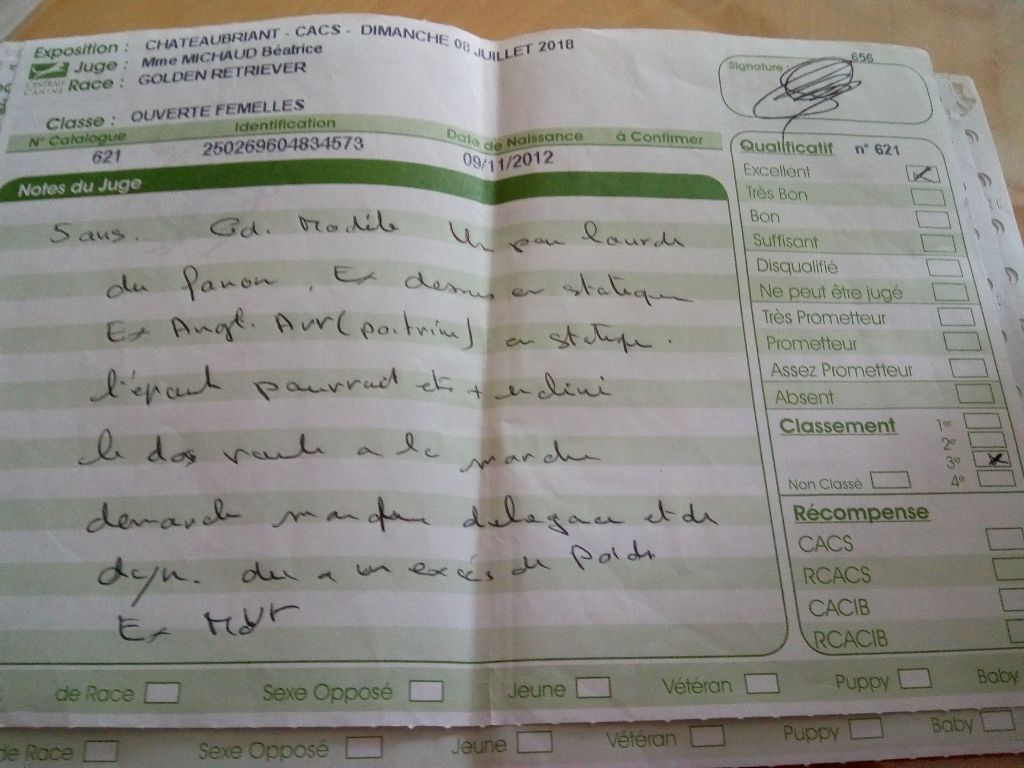 Exposition : CHATEAUBRIANT - CACS - DIMANCHE 08 JUILLET 2018
Juge : Mme MICHAUD Béatrice
CENTRALE CANINE Race : GOLDEN RETRIEVER
Classe : OUVERTE FEMELLES
N° Catalogue Identification Date de Naissance à Confirmer
621 250269604834573 09/11/2012
Notes du Juge
5 ans. Gd. Modèle Un peu lourde
du fanon, Ex dessus en statique
Ex Angl. Avr (poitrine) en statique.
l'épaule pourrait etr + inclini
le dos roule a la marche
demande manque d elegance et de
dyn. du a un excés de poids
Ex
Signature :
656
Qualificatif n° 621
Excellent
Très Bon
Bon
Suffisant
Disqualifié
Ne peut être jugé
Très Prometteur
Prometteur
Assez Prometteur
Absent
Classement 1er
2e
3e
Non Classé 4e
Récompense
CACS
RCACS
CACIB
RCACIB
de Race Sexe Opposé Jeune Vétéran Puppy Baby
de Race Sexe Opposé Jeune Vétéran Puppy Baby